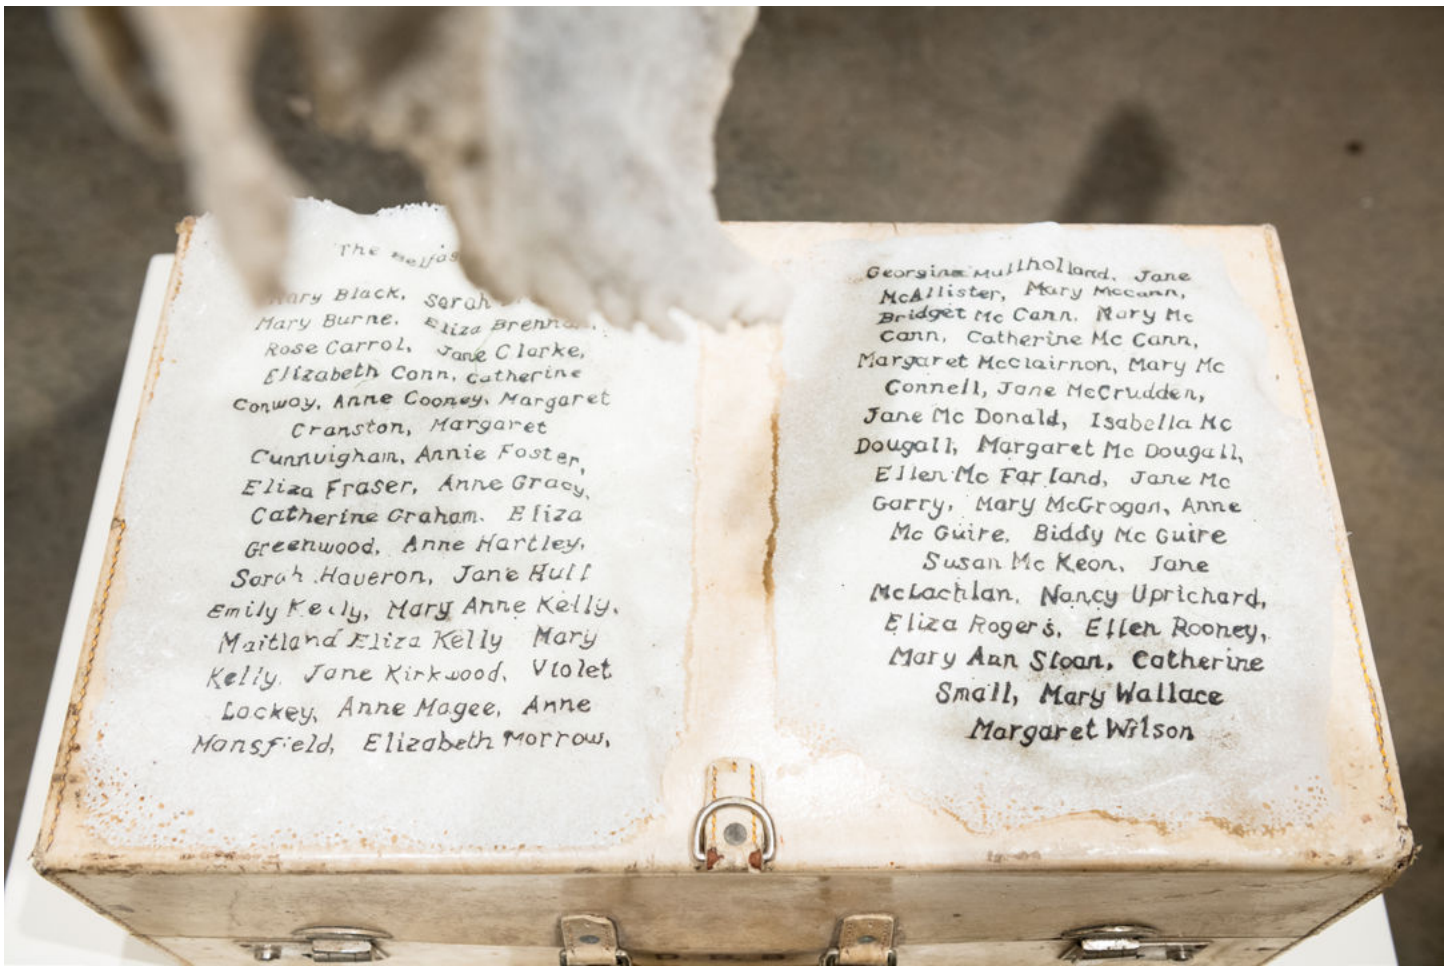 The Belfas
Mary Black, Sarah
Mary Burne, Eliza
Rose Carrol, Jane Clarke,
Elizabeth Conn, Catherine
Conway, Anne Cooney, Margaret
Cranston, Margaret
Cunnuigham, Annie Foster,
Eliza Fraser, Anne Gracy,
Catherine Graham. Eliza
Greenwood, Anne Hartley,
Sarah Haveron, Jane Hull
Emily Kelly, Mary Anne Kelly,
Maitland Eliza Kelly Mary
Kelly, Jane Kirkwood, Violet
Lockey, Anne Magee, Anne
Mansfield, Elizabeth Morrow,
Georgina Mullholland, Jane
McAllister, Mary Mccann,
Bridget Mc Cann, Mary Mc
Cann, Catherine Mc Cann,
Margaret McClairnon, Mary Mc
Connell, Jane McCrudden,
Jane Mc Donald, Isabella Mc
Dougall, Margaret Mc Dougall,
Ellen Mc Farland, Jane Mc
Garry, Mary McGrogan, Anne
Mc Guire, Biddy Mc Guire
Susan Mc Keon, Jane
McLachlan, Nancy Uprichard,
Eliza Rogers, Ellen Rooney,
Mary Ann Sloan, Catherine
Small, Mary Wallace
Margaret Wilson